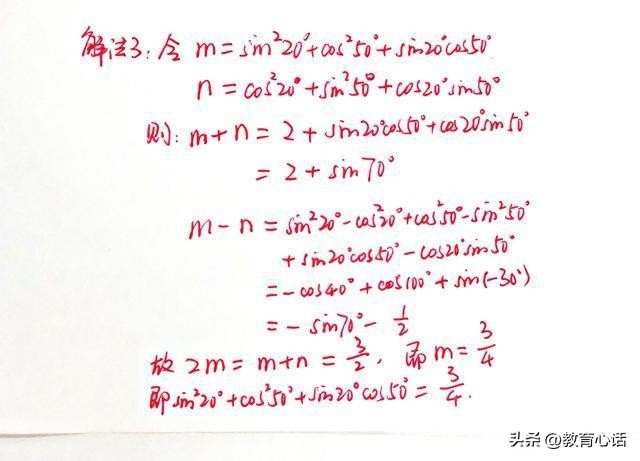 解法3：令 m=sin²20°+cos²50°+sin20°cos50°
n=cos²20°+sin²50°+cos20°sin50°
则：m+n=2+sin20°cos50°+cos20°sin50°
=2+sin70°
m-n=sin²20°-cos²20°+cos²50°-sin²50°
+sin20°cos50°-cos20°sin50°
=-cos40°+cos100°+sin(-30°)
=-sin70°-1/2
故 2m=m+n=3/2，即 m=3/4
即sin²20°+cos²50°+sin20°cos50°=3/4.
头条 @教育心话